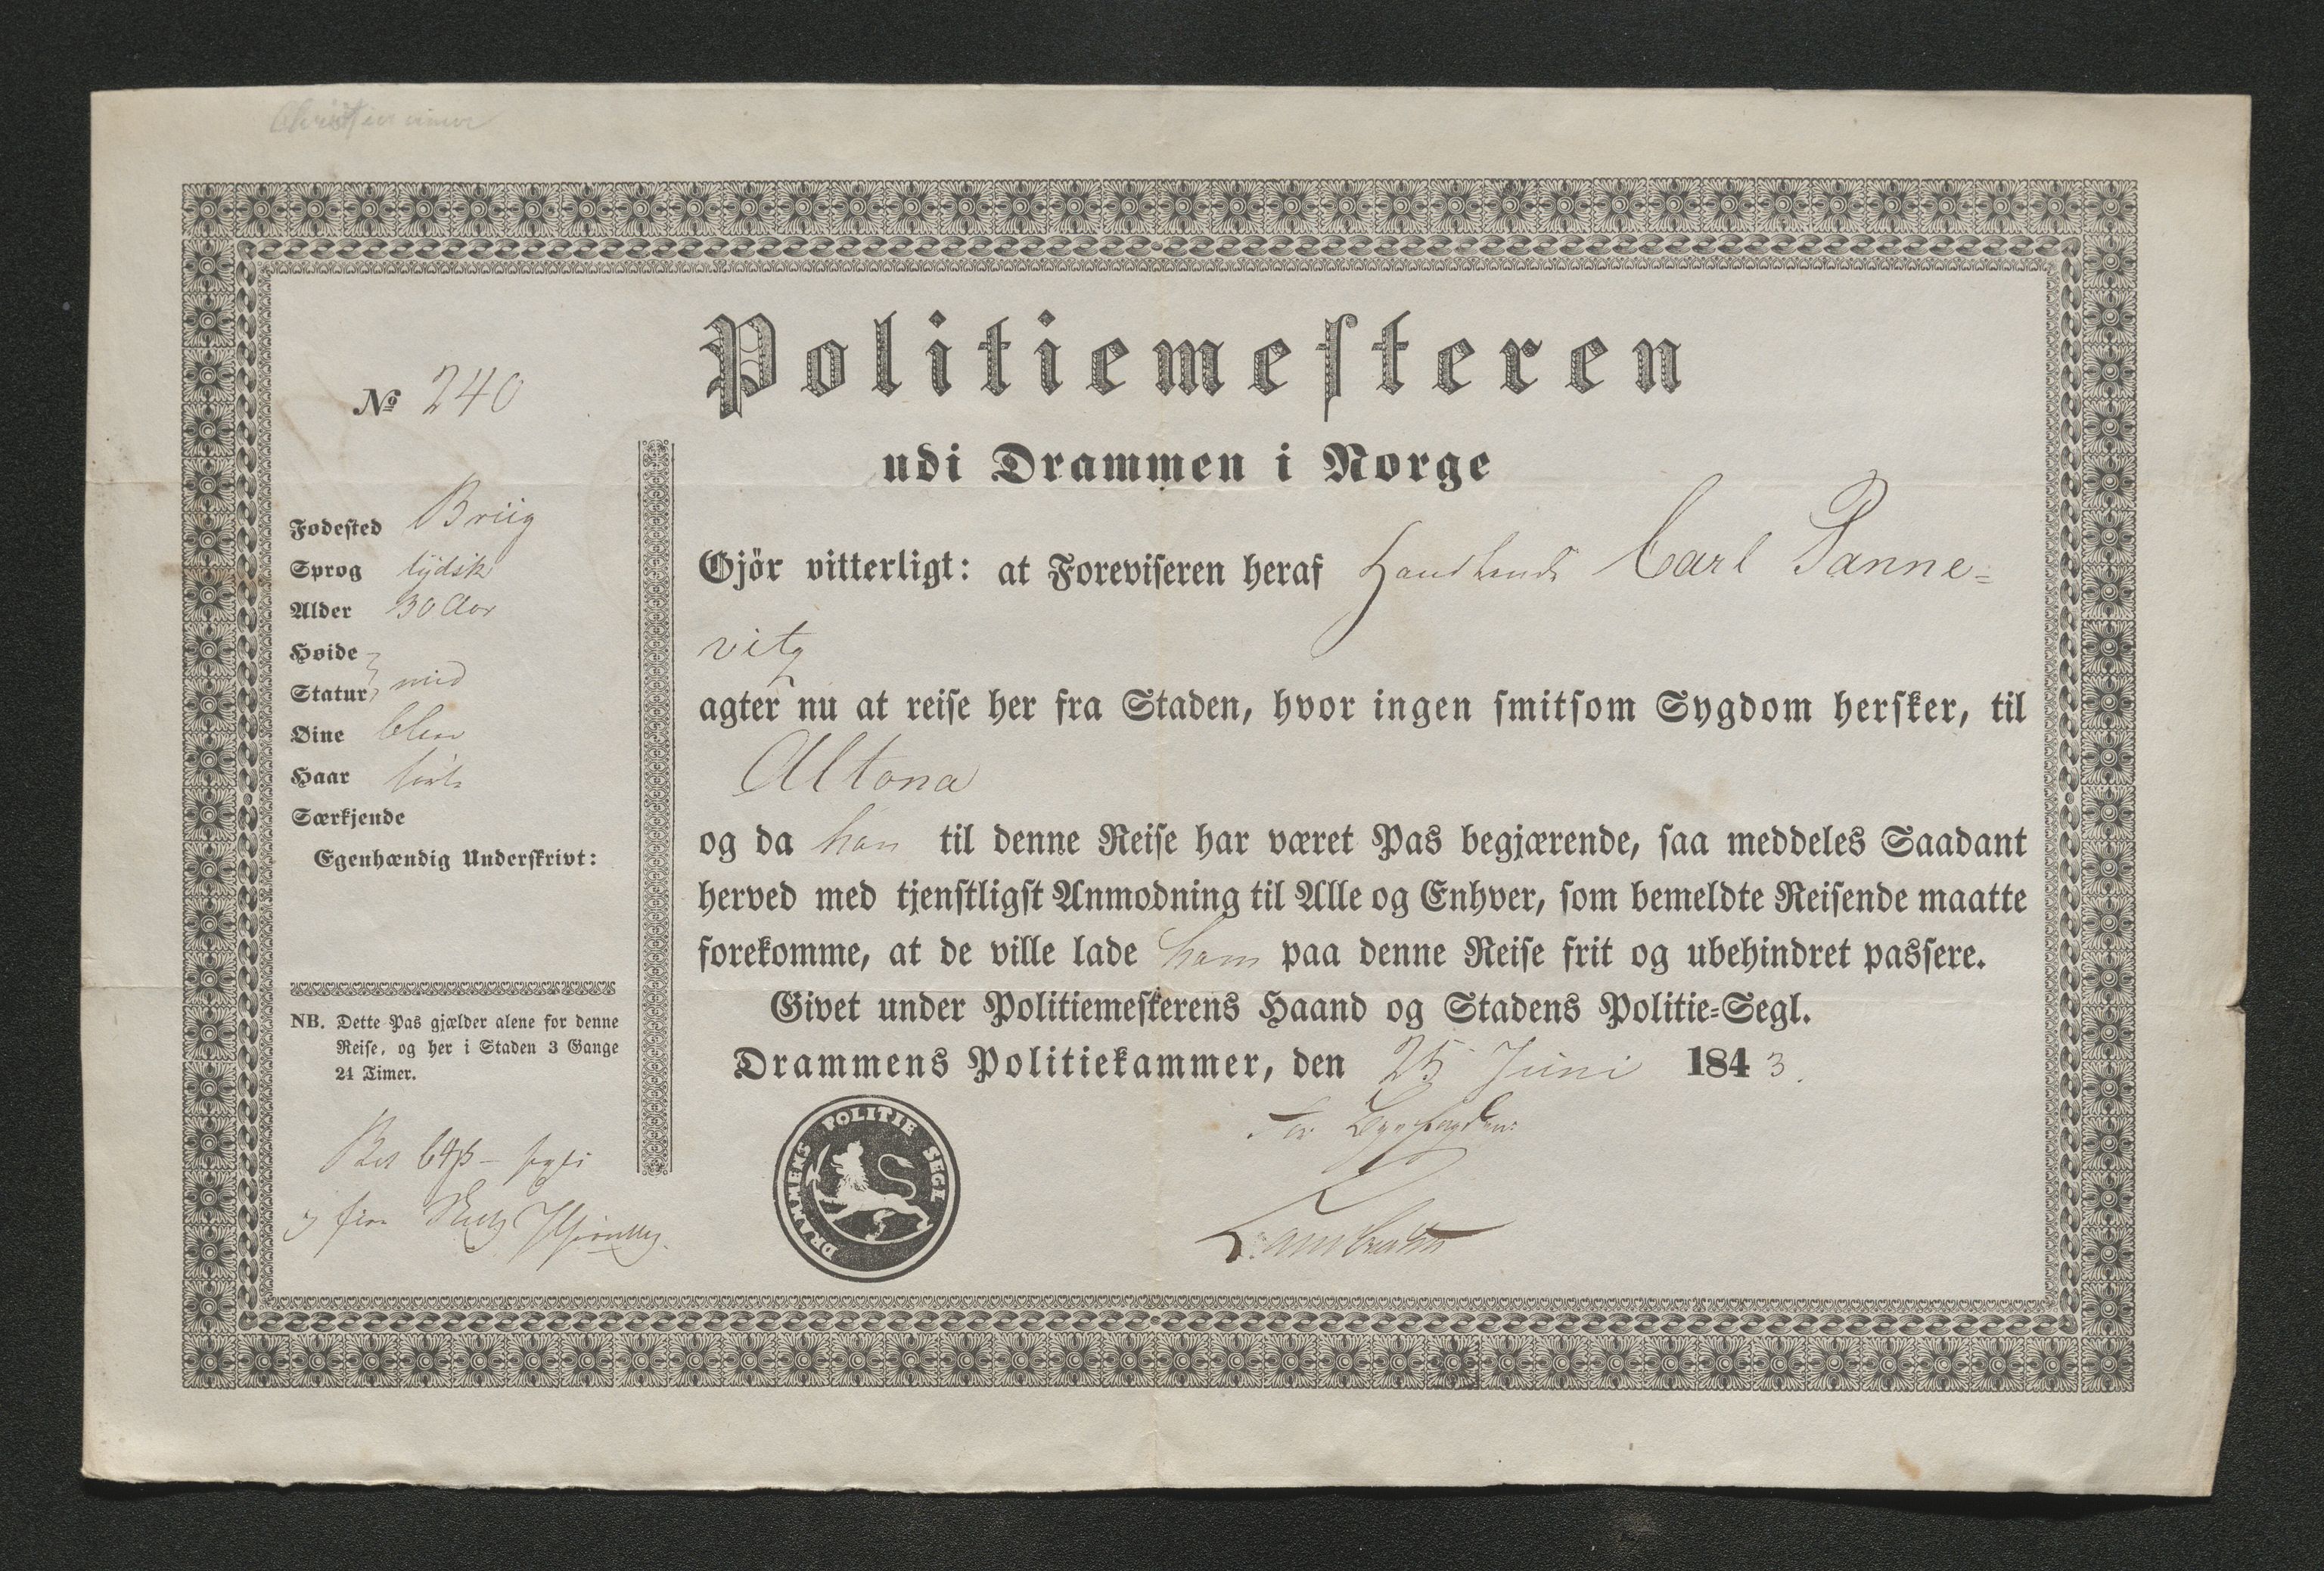 Politiemesteren
udi Drammen i Norge
№ 240
Fødested Briig
Sprog tydsk
Alder 30 Aar
Høide
Statur mid
Øine blaa
Haar
Særkjende
Egenhændig Underskrivt:
NB. Dette Pas gjælder alene for denne
Reise, og her i Staden 3 Gange
24 Timer.
Gjör vitterligt: at Foreviseren heraf Handlende Carl Panne=
vitz
agter nu at reise her fra Staden, hvor ingen smitsom Sygdom hersker, til
Altona
og da han til denne Reise har været Pas begjærende, saa meddeles Saadant
herved med tjenstligst Anmodning til Alle og Enhver, som bemeldte Reisende maatte
forekomme, at de ville lade ham paa denne Reise frit og ubehindret passere.
Givet under Politiemesterens Haand og Stadens Politie=Segl.
Drammens Politiekammer, den 25 Juni 1843.
DRAMMENS POLITIE SEGL
For Byefogden: